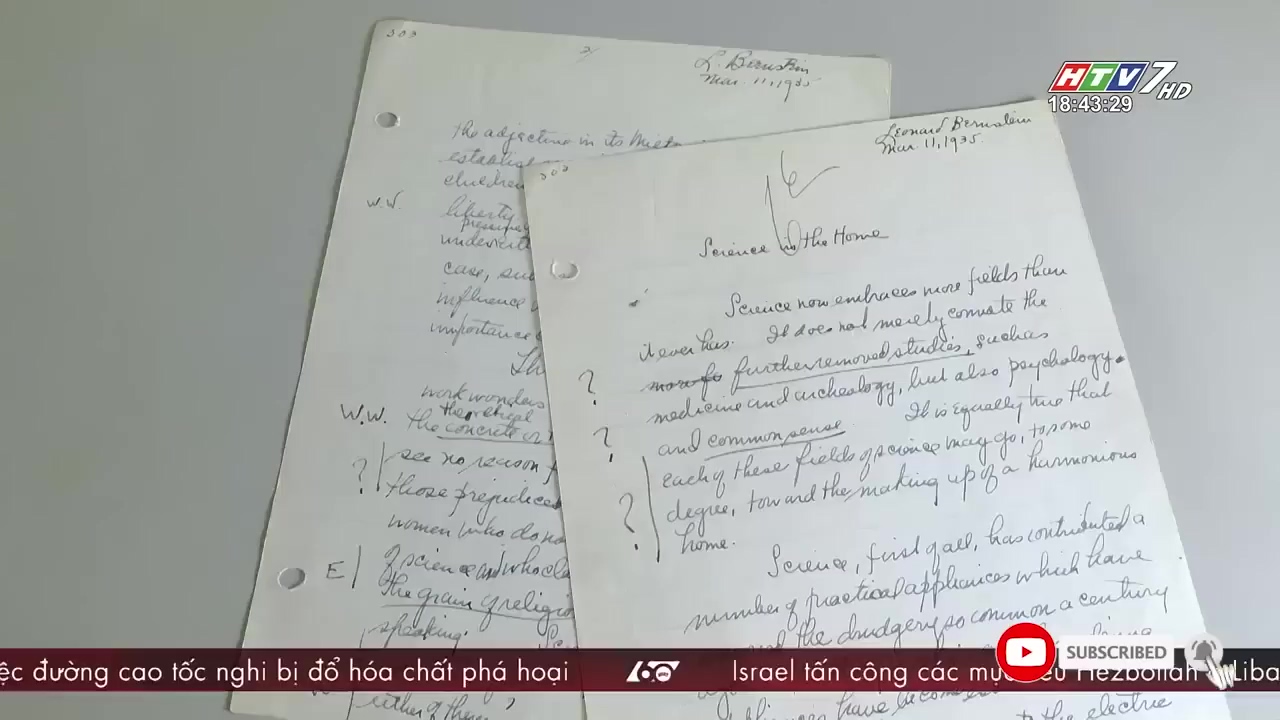 303
2/
L. Bernstein
Mar. 11, 1935
the adjective in its
children
W.W. liberty
case,
influence
importance
work wonders
theoretical
W.W. the concrete
? see no reason
those prejudices
women who do no
E of science and who
the grain of religio
speaking.
either of these
303
Leonard Bernstein
Mar. 11, 1935.
Science in the Home
Science now embraces more fields than
it ever has. It does not merely connote the
? further removed studies, such as
medicine and archeology, but also psychology
? and common sense. It is equally true that
each of these fields of science may go, to some
? degree, toward the making up of a harmonious
home.
Science, first of all, has contributed a
number of practical appliances which have
the drudgery so common a century
have become
to the electric
HTV7 HD
18:43:29
SUBSCRIBED
ệc đường cao tốc nghi bị đổ hóa chất phá hoại 60 Israel tấn công các mục tiêu Hezbollah Liba